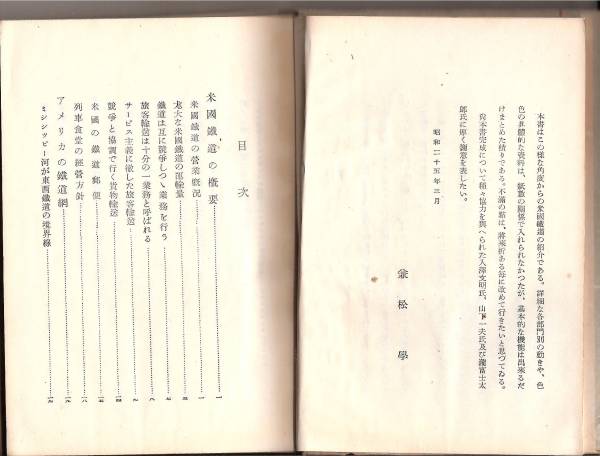 本書はこの樣な角度からの米國鐵道の紹介である。詳細な各部門別の動きや、色
色の具體的な資料は、紙數の關係で入れられなかつたが、基本的な機能は出來るだ
けまとめた積りである。不滿の點は、將來折ある毎に改めて行きたいと思つてゐる。
尚本書完成について種々協力を與へられた入澤文明氏、山下一夫氏及び瀧富士太
郎氏に厚く謝意を表したい。
昭和二十五年三月
兼松學
目次
米國鐵道の概要
米國鐵道の營業概況
尨大な米國鐵道の運輸量
鐵道は互に競爭しつゝ業務を行う
旅客輸送は十分の一業務と呼ばれる
サービス主義に徹した旅客輸送
競爭と協調で行く貨物輸送
米國の鐵道郵便
列車食堂の經營方針
アメリカの鐵道網
ミシシッピー河が東西鐵道の境界線